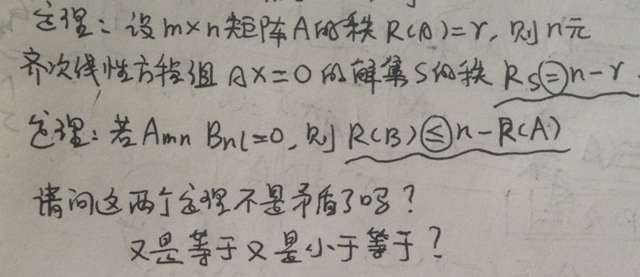 定理：设m×n矩阵A的秩R(A)=r，则n元
齐次线性方程组AX=0的解集S的秩Rs=n-r
定理：若Amn Bnl=0，则R(B)≤n-R(A)
请问这两个定理不是矛盾了吗？
又是等于又是小于等于？